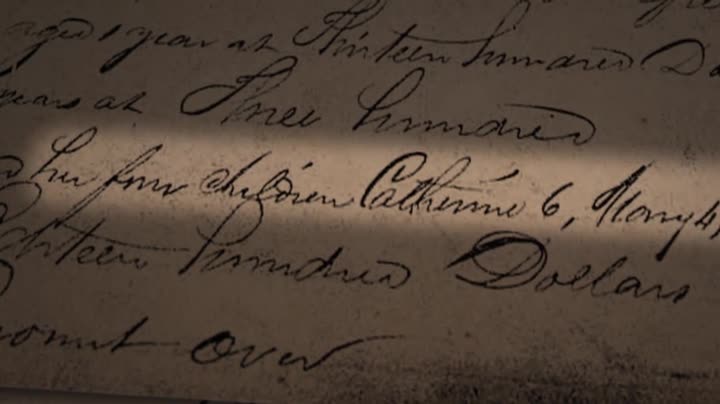 aged 1 year at Thirteen hundred Do
years at Three hundred
her four children Catherine 6, Mary 4,
Eighteen hundred Dollars
amount over